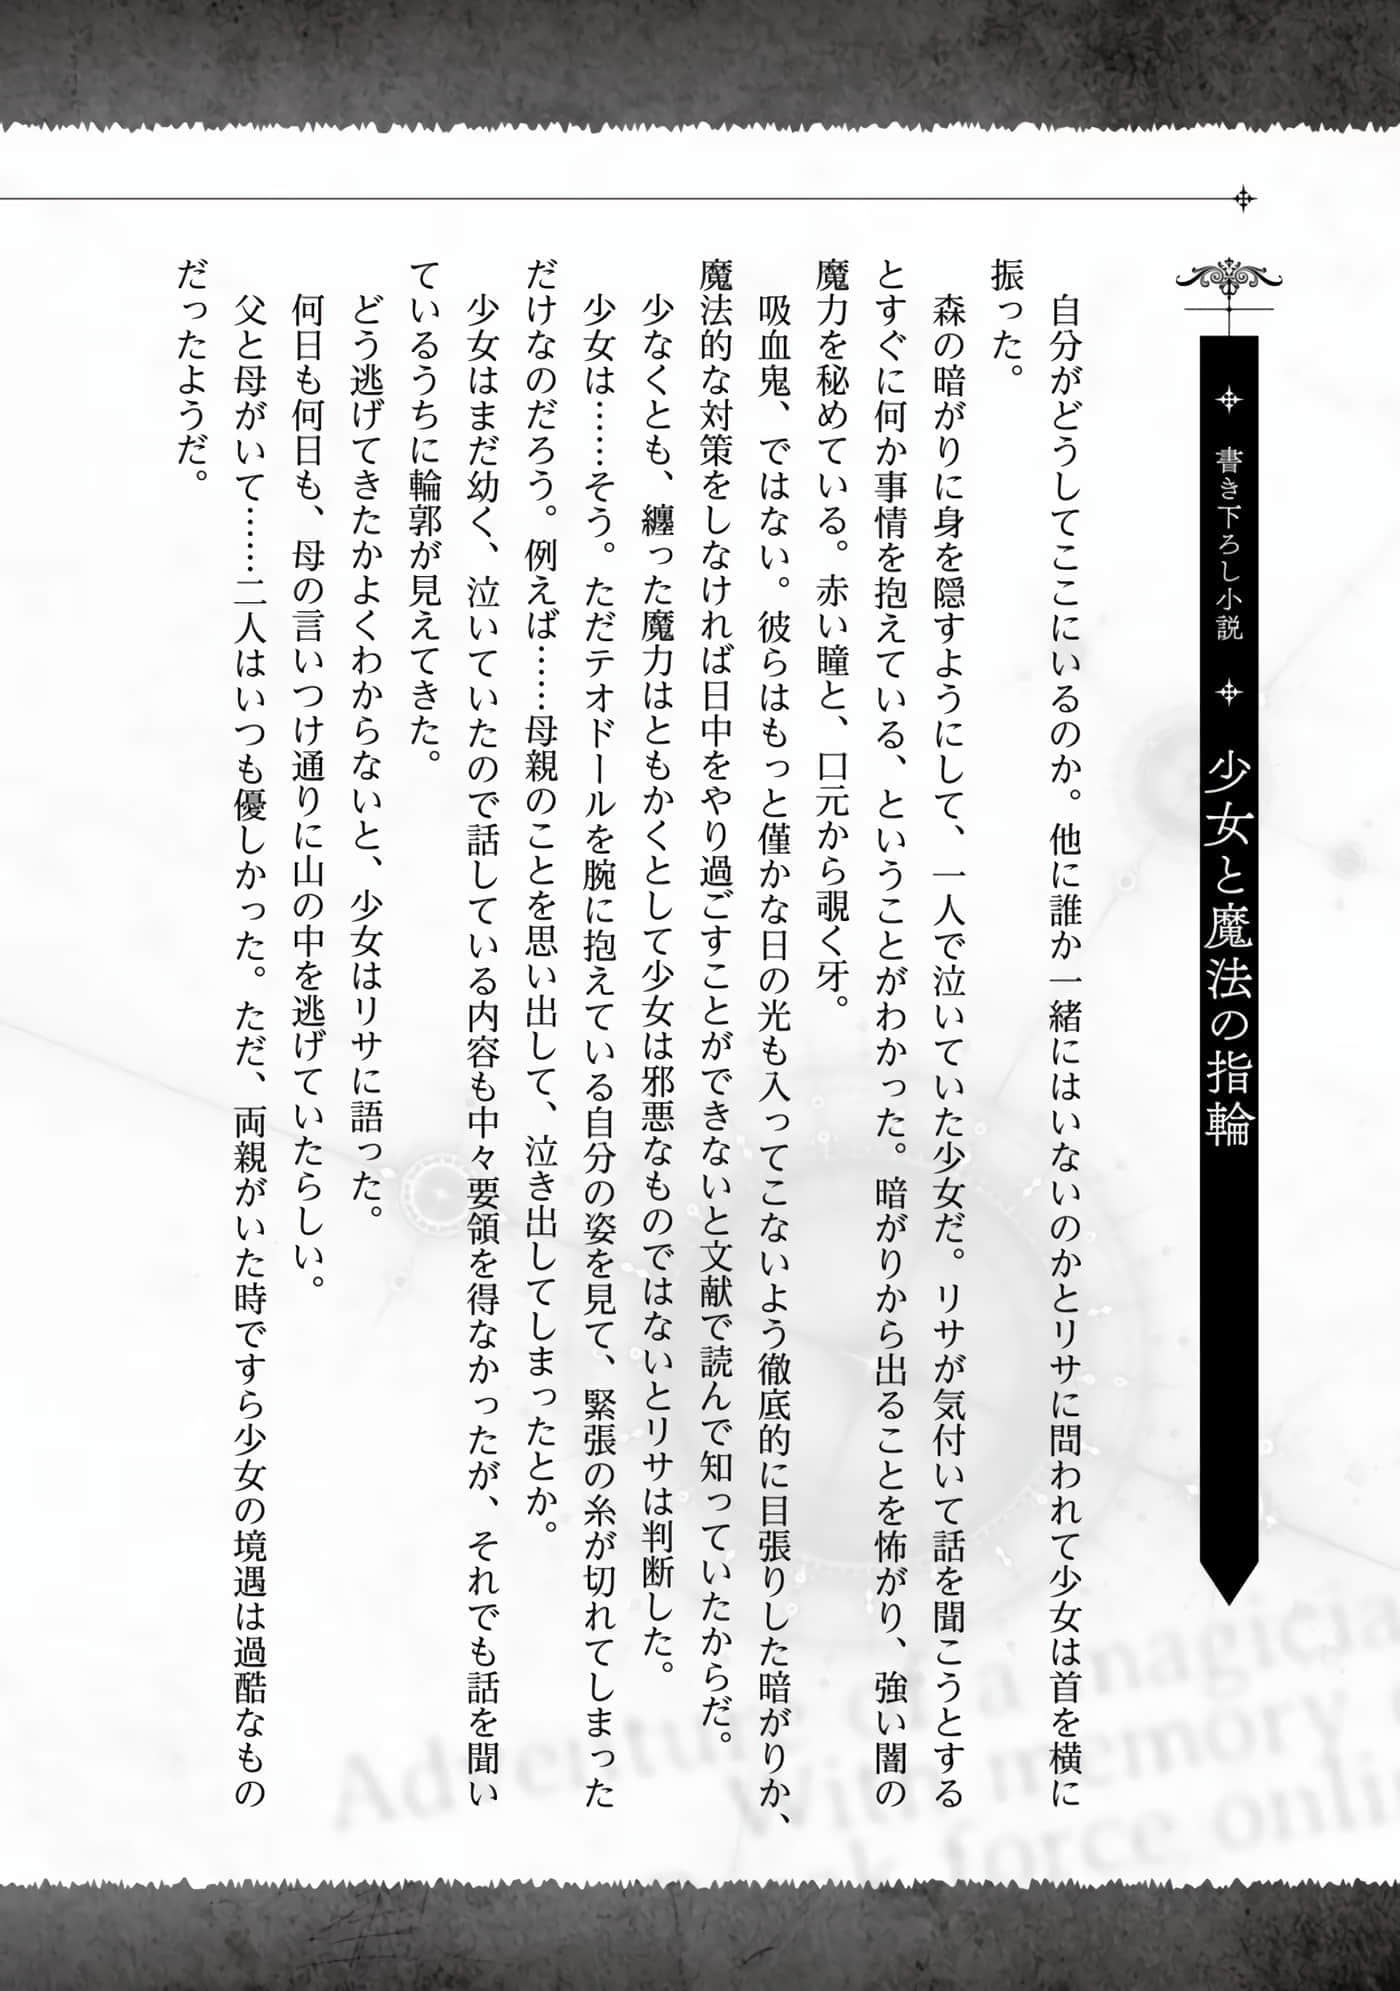 書き下ろし小説 少女と魔法の指輪
自分がどうしてここにいるのか。他に誰か一緒にはいないのかとリサに問われて少女は首を横に
振った。
森の暗がりに身を隠すようにして、一人で泣いていた少女だ。リサが気付いて話を聞こうとする
とすぐに何か事情を抱えている、ということがわかった。暗がりから出ることを怖がり、強い闇の
魔力を秘めている。赤い瞳と、口元から覗く牙。
吸血鬼、ではない。彼らはもっと僅かな日の光も入ってこないよう徹底的に目張りした暗がりか、
魔法的な対策をしなければ日中をやり過ごすことができないと文献で読んで知っていたからだ。
少なくとも、纏った魔力はともかくとして少女は邪悪なものではないとリサは判断した。
少女は……そう。ただテオドールを腕に抱えている自分の姿を見て、緊張の糸が切れてしまった
だけなのだろう。例えば……母親のことを思い出して、泣き出してしまったとか。
少女はまだ幼く、泣いていたので話している内容も中々要領を得なかったが、それでも話を聞い
ているうちに輪郭が見えてきた。
どう逃げてきたかよくわからないと、少女はリサに語った。
何日も何日も、母の言いつけ通りに山の中を逃げていたらしい。
父と母がいて……二人はいつも優しかった。ただ、両親がいた時ですら少女の境遇は過酷なもの
だったようだ。
Adventure of a magicia
With memory
force onli